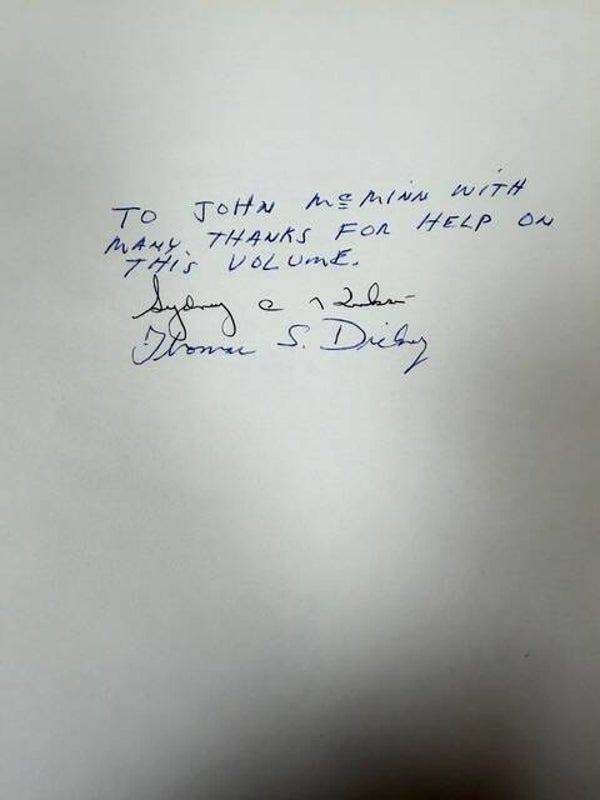 TO JOHN McMINN WITH
MANY THANKS FOR HELP ON
THIS VOLUME.
Sydney
Thomas S.